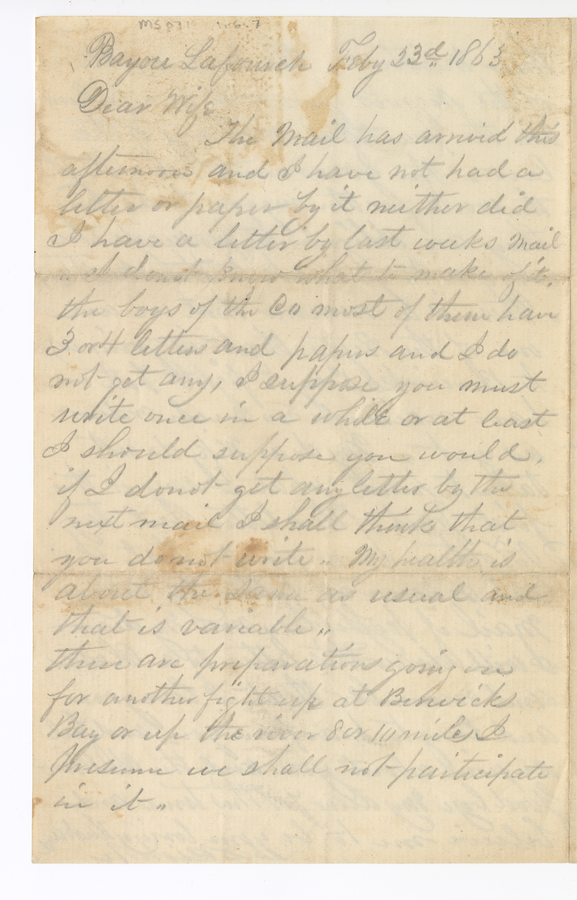 Bayou Lafourch Feby 23d 1863
Dear Wife
The Mail has arrived this
afternoon and I have not had a
letter or paper by it neither did
I have a letter by last weeks Mail
I donot know what to make of it.
the boys of the Co most of them have
3 or 4 letters and papers and I do
not get any, I suppose you must
write once in a while or at least
I should suppose you would.
if I donot get any letter by the
next mail I shall think that
you donot write.. My health is
about the same as usual and
that is variable..
there are preparations going on
for another fight up at Berwicks
Bay or up the river 8 or 10 miles I
presume we shall not participate
in it..